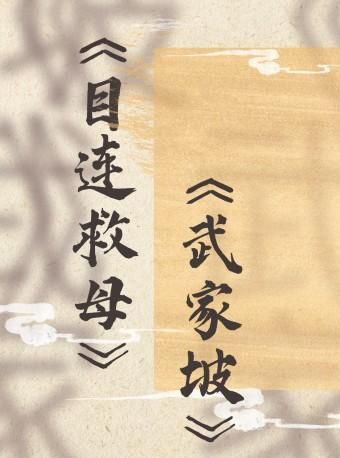 《目连救母》
《武家坡》